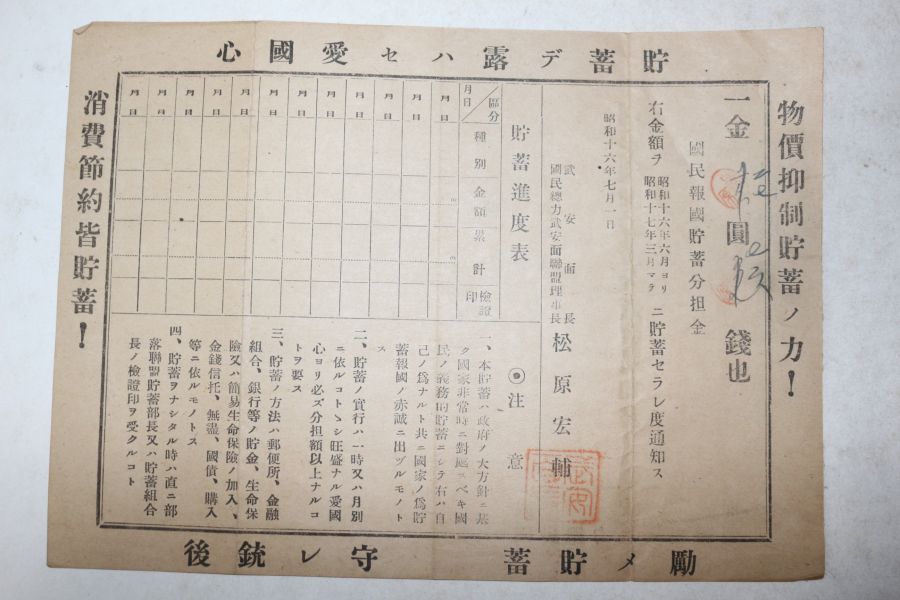 貯蓄デ露ハセ愛國心
物價抑制貯蓄ノ力!
一金 圓 錢也
國民報國貯蓄分担金
右金額ヲ 昭和十六年六月ヨリ 昭和十七年三月マデ ニ貯蓄セラレ度通知ス
昭和十六年七月一日
武安面長
國民總力武安面聯盟理事長
松原宏輔
貯蓄進度表
區分 月日
種別
金額
累計
檢證印
月日 月日 月日 月日 月日 月日 月日 月日 月日 月日 月日
◉注意
一、本貯蓄ハ政府ノ大方針ニ基
ク國家非常時ニ對處スベキ國
民ノ義務的貯蓄ニシテ右ハ自
己ノ爲ナルト共ニ國家ノ爲貯
蓄報國ノ赤誠ニ出ヅルモノト
ス
二、貯蓄ノ實行ハ一時又ハ月別
ニ依ルコトヽシ旺盛ナル愛國
心ヨリ必ズ分担額以上ナルコ
トヲ要ス
三、貯蓄ノ方法ハ郵便所、金融
組合、銀行等ノ貯金、生命保
險又ハ簡易生命保險ノ加入、
金錢信托、無盡、國債、購入
等ニ依ルモノトス
四、貯蓄ヲナシタル時ハ直ニ部
落聯盟貯蓄部長又ハ貯蓄組合
長ノ檢證印ヲ受クルコト
消費節約皆貯蓄!
勵メ貯蓄 守レ銃後